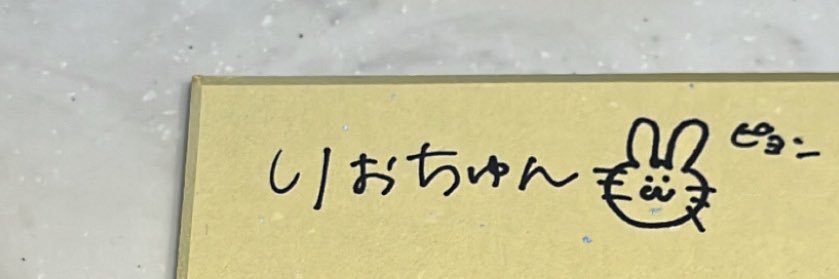 りおちゅん ピョン